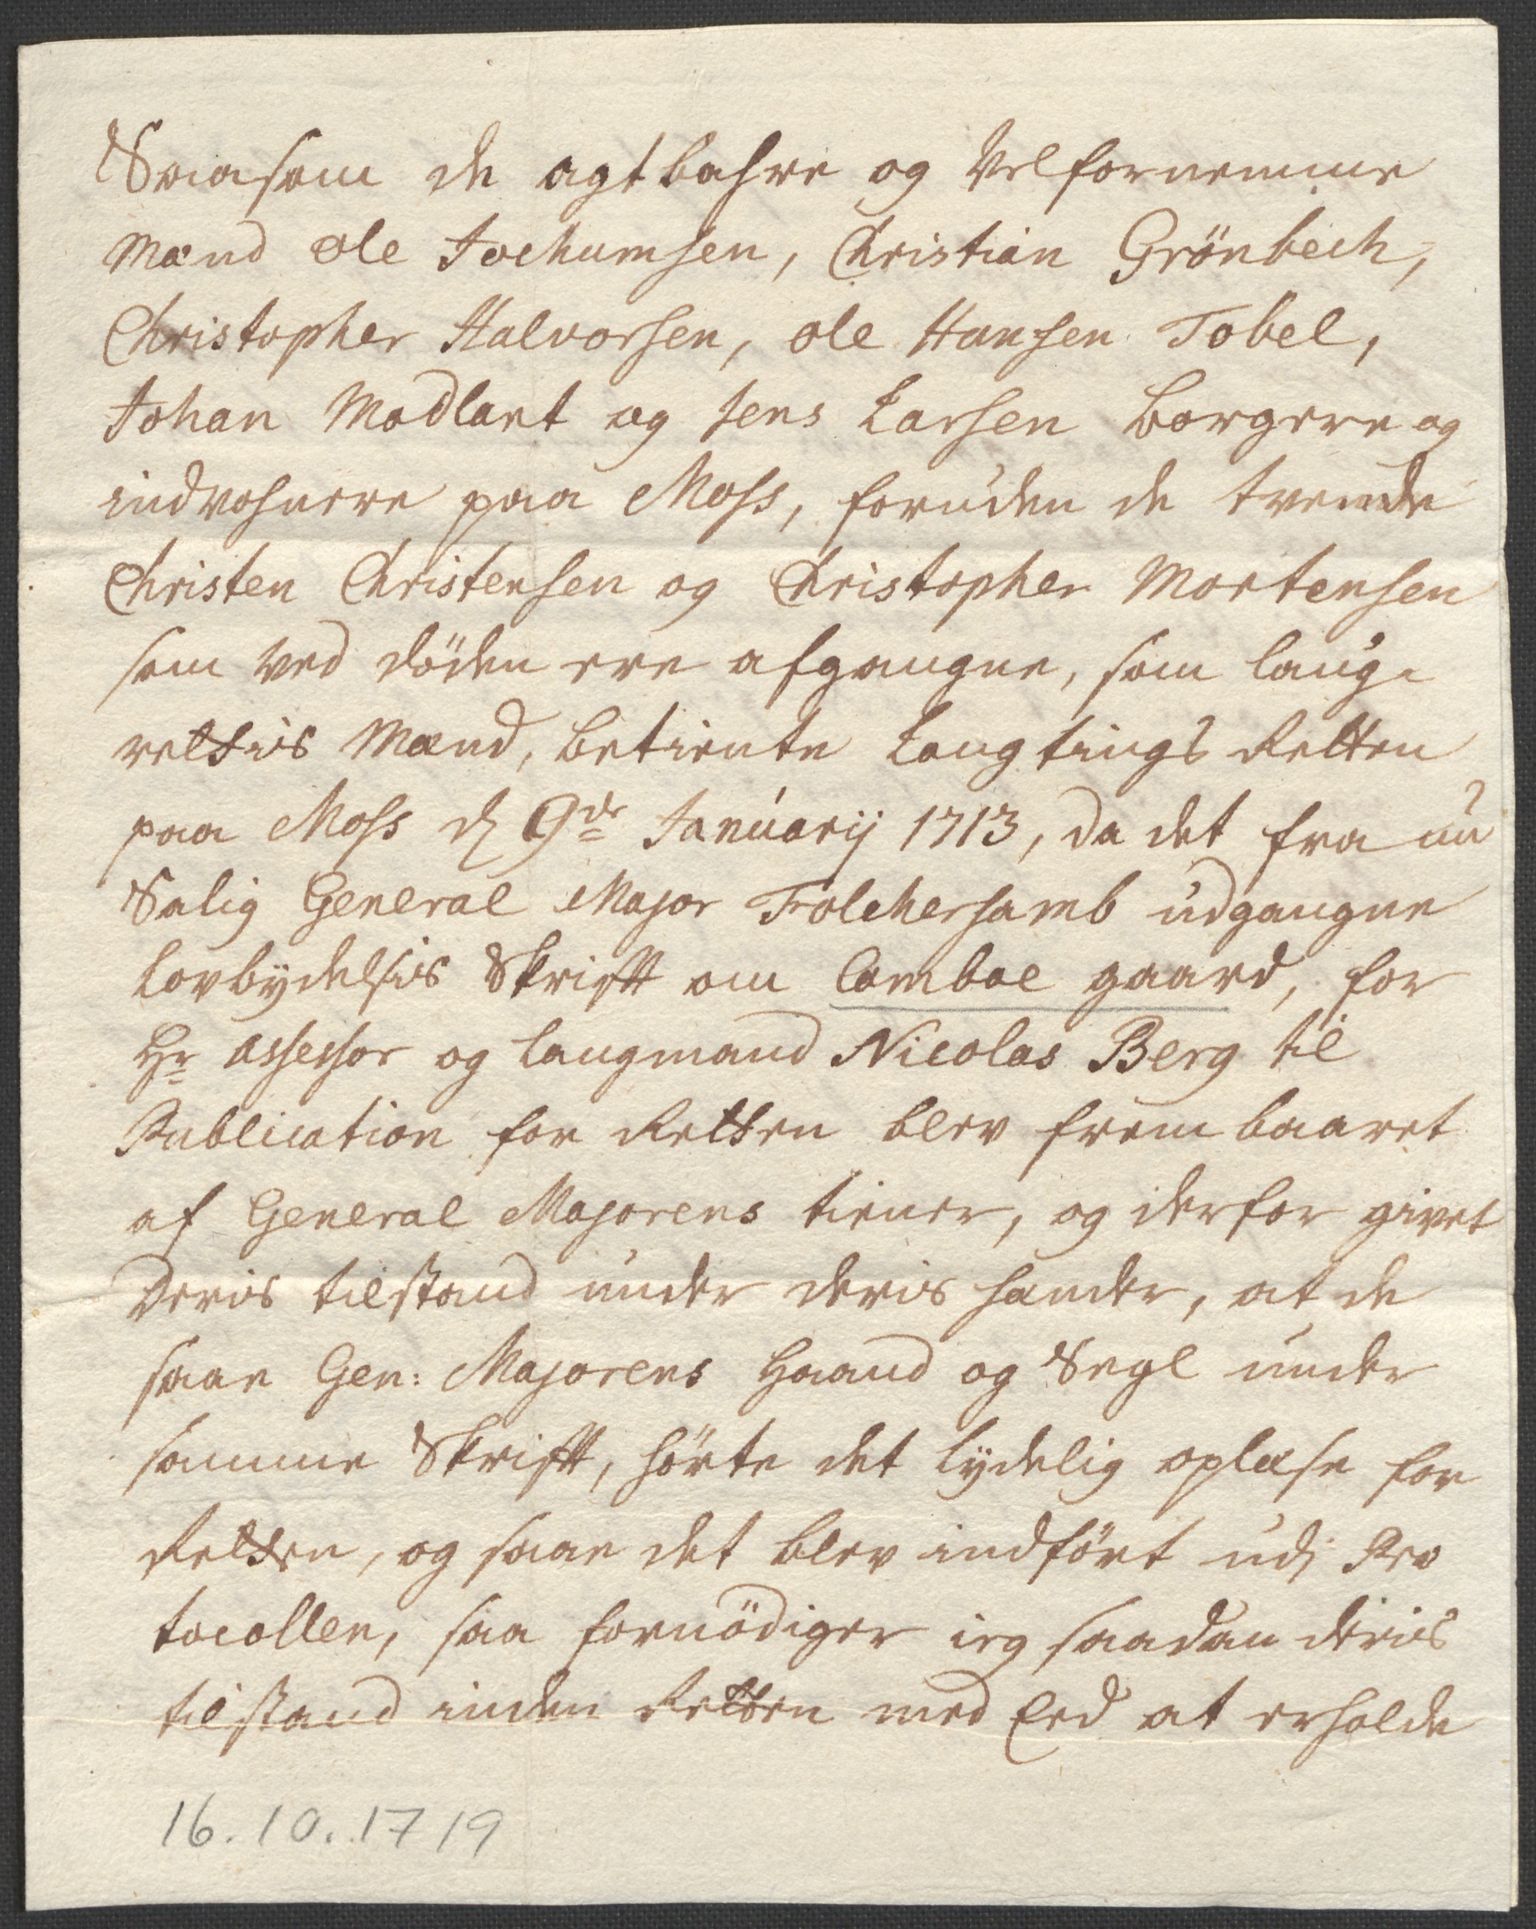 Saasom de agtbahre og Velfornemme
Mænd Ole Jochumsen, Christian Grönbech,
Christopher Halvorsen, Ole Hansen Tobel,
Johan Modlant og Jens Larsen borgere og
indvohnere paa Moss, foruden de tvende
Christen Christensen og Christopher Mortensen
som ved döden ere afgangne, som laug-
rettis Mænd, betiente Laugtings Retten
paa Moss d 9de Januarij 1713, da det fra nu
Salig General Major Folchersamb udgangne
Lovbydelsis Skrifft om Camboe gaard, for
Hr Assessor og Laugmand Nicolas Berg til
Publication for Retten blev frembaaret
af General Majorens tiener, og derfor givet
deris tilstand under deris hænder, at de
saae Gen: Majorens Haand og Segl under
samme Skrifft, hörte det lydelig oplæse for
Retten, og saae det blev indfört udj Pro
tocollen, saa fornödiger ieg saadan deris
tilstand inden Retten med Eed at erholde
16.10.1719